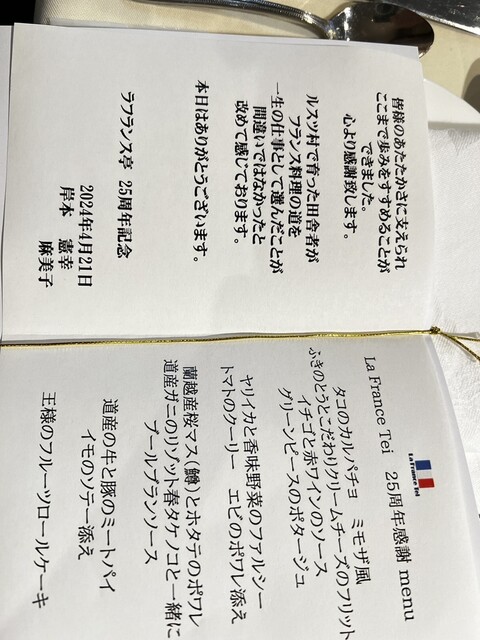 皆様のあたたかさに支えられ
ここまで歩みをすすめることが
できました。
心より感謝致します。
ルスツ村で育った田舎者が
フランス料理の道を
一生の仕事として選んだことが
間違いではなかったと
改めて感じております。
本日はありがとうございます。
ラフランス亭　25周年記念
2024年4月21日
岸本　憲幸
麻美子
La France Tei
La France Tei　25周年感謝 menu
タコのカルパチョ　ミモザ風
ふきのとうとこだわりクリームチーズのフリット
イチゴと赤ワインのソース
グリーンピースのポタージュ
ヤリイカと香味野菜のファルシー
トマトのクーリー　エビのポワレ添え
蘭越産桜マス(鱒)とホタテのポワレ
道産ガニのリゾット春タケノコと一緒に
ブールブランソース
道産の牛と豚のミートパイ
イモのソテー添え
王様のフルーツロールケーキ